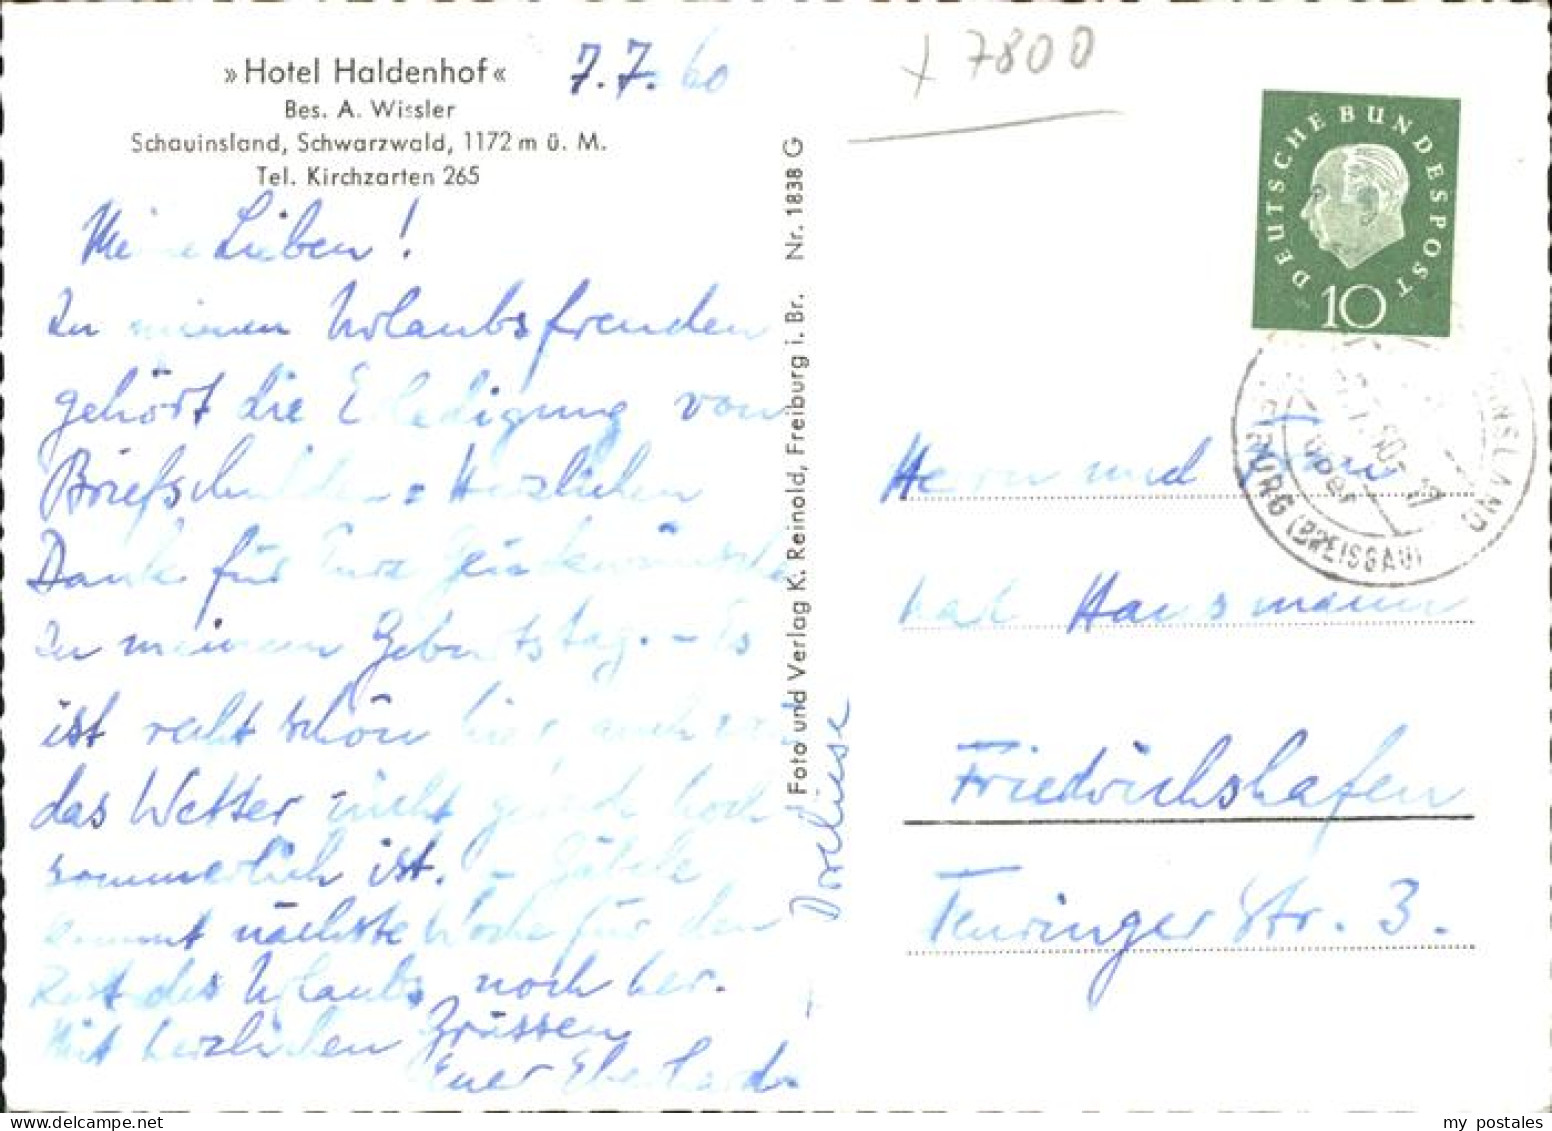 »Hotel Haldenhof«
Bes. A. Wissler
Schauinsland, Schwarzwald, 1172 m ü. M.
Tel. Kirchzarten 265
7.7.60
Meine Lieben!
Zu meinen Urlaubsfreuden
gehört die Erledigung von
Briefschulden. Herzlichen
Dank für Eure Glückwünsche
zu meinem Geburtstag. - Es
ist recht schön hier, auch wenn
das Wetter nicht gerade hoch
sommerlich ist. -
kommt nächste Woche für den
Rest des Urlaubs noch her.
Mit herzlichen Grüssen
Euer Eberhard
Dorliese
Foto und Verlag K. Reinold, Freiburg i. Br. Nr. 1838 G
x 7800
DEUTSCHE BUNDESPOST
10
über
FREIBURG (BREISGAU)
Herrn und Frau
Hausmann
Friedrichshafen
Teuringer Str. 3.
my postales